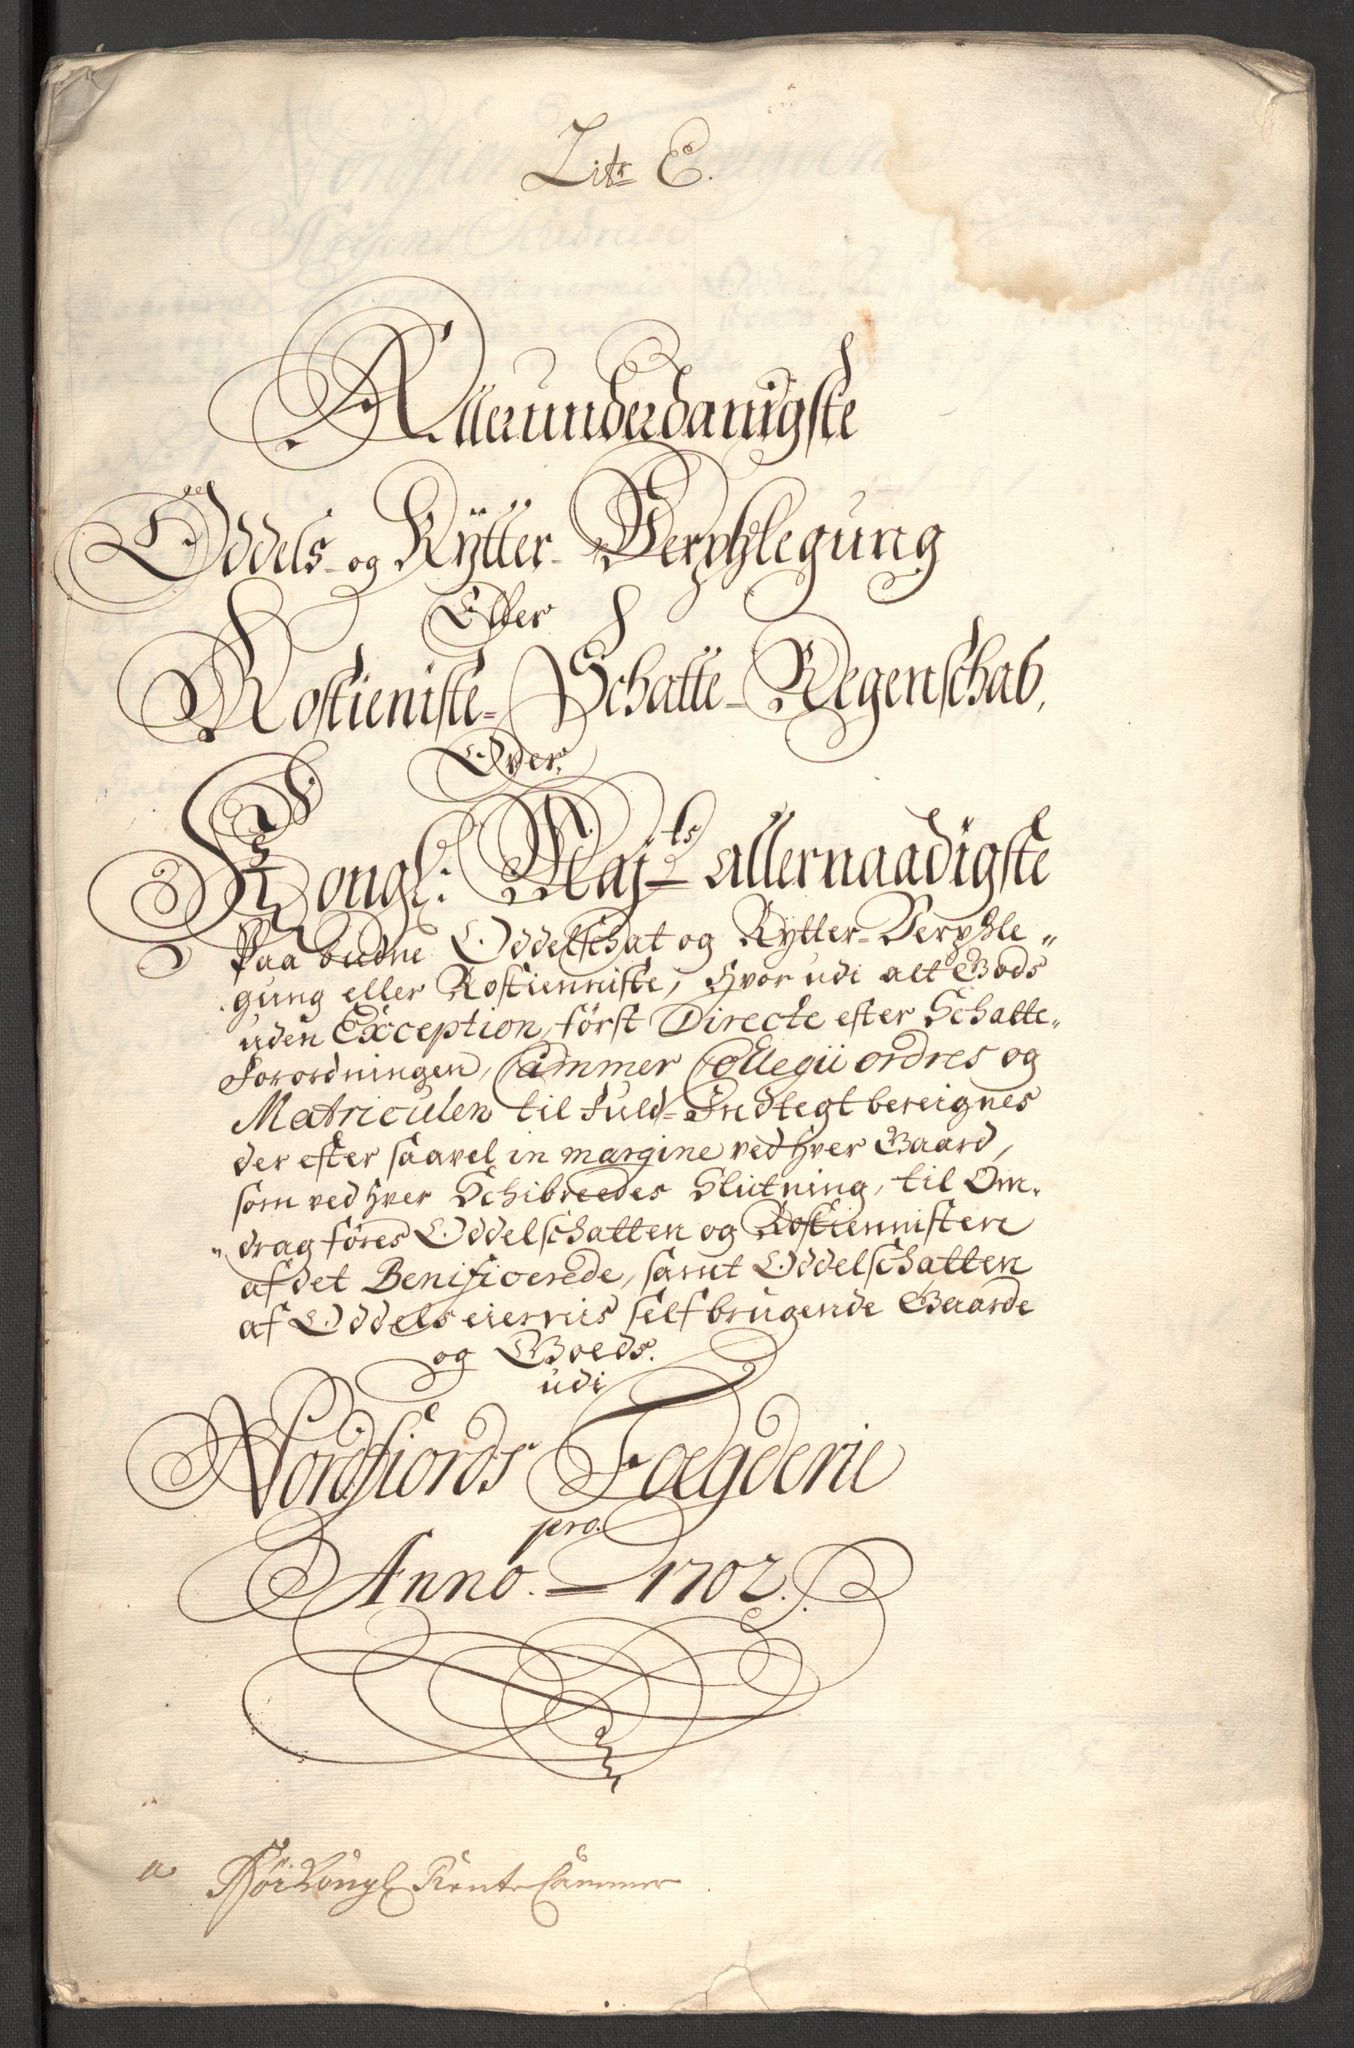 Litr E.
Allerunderdanigste
Oddels- og Rÿtter- Verphlegung
Eller
Rostieniste- Schatte- Regenschab,
Over
Kongl: Majts allernaadigste
Paabudne Oddelschat og Rytter-Verphle„
gung eller Rostienniste, hvor udi alt Gods
uden Exception, först Directe efter Schatte„
Forordningen, Cammer Collegii ordres og
Matriculen til fuld-Indtegt bereignes
der efter saavel in margine ved hver Gaard,
som ved hver Schibreedes Slutning, til Om„
„drag föres Oddelschatten og Rostiennisten
af det Benificerede, samt Oddelschatten
af Oddels eiernis self brugende Gaarde
og Goeds.
udi
Nordfiords Fogderie
pro.
Anno. 1702.
a Höi Kongl Rente Cammer